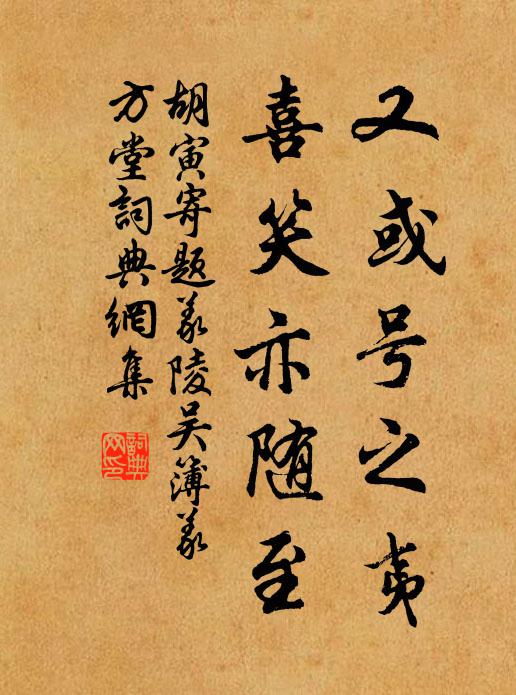 又或号之夷
喜笑亦随至
胡寅寄题义陵吴簿义
方堂詞典網集
詞典网印